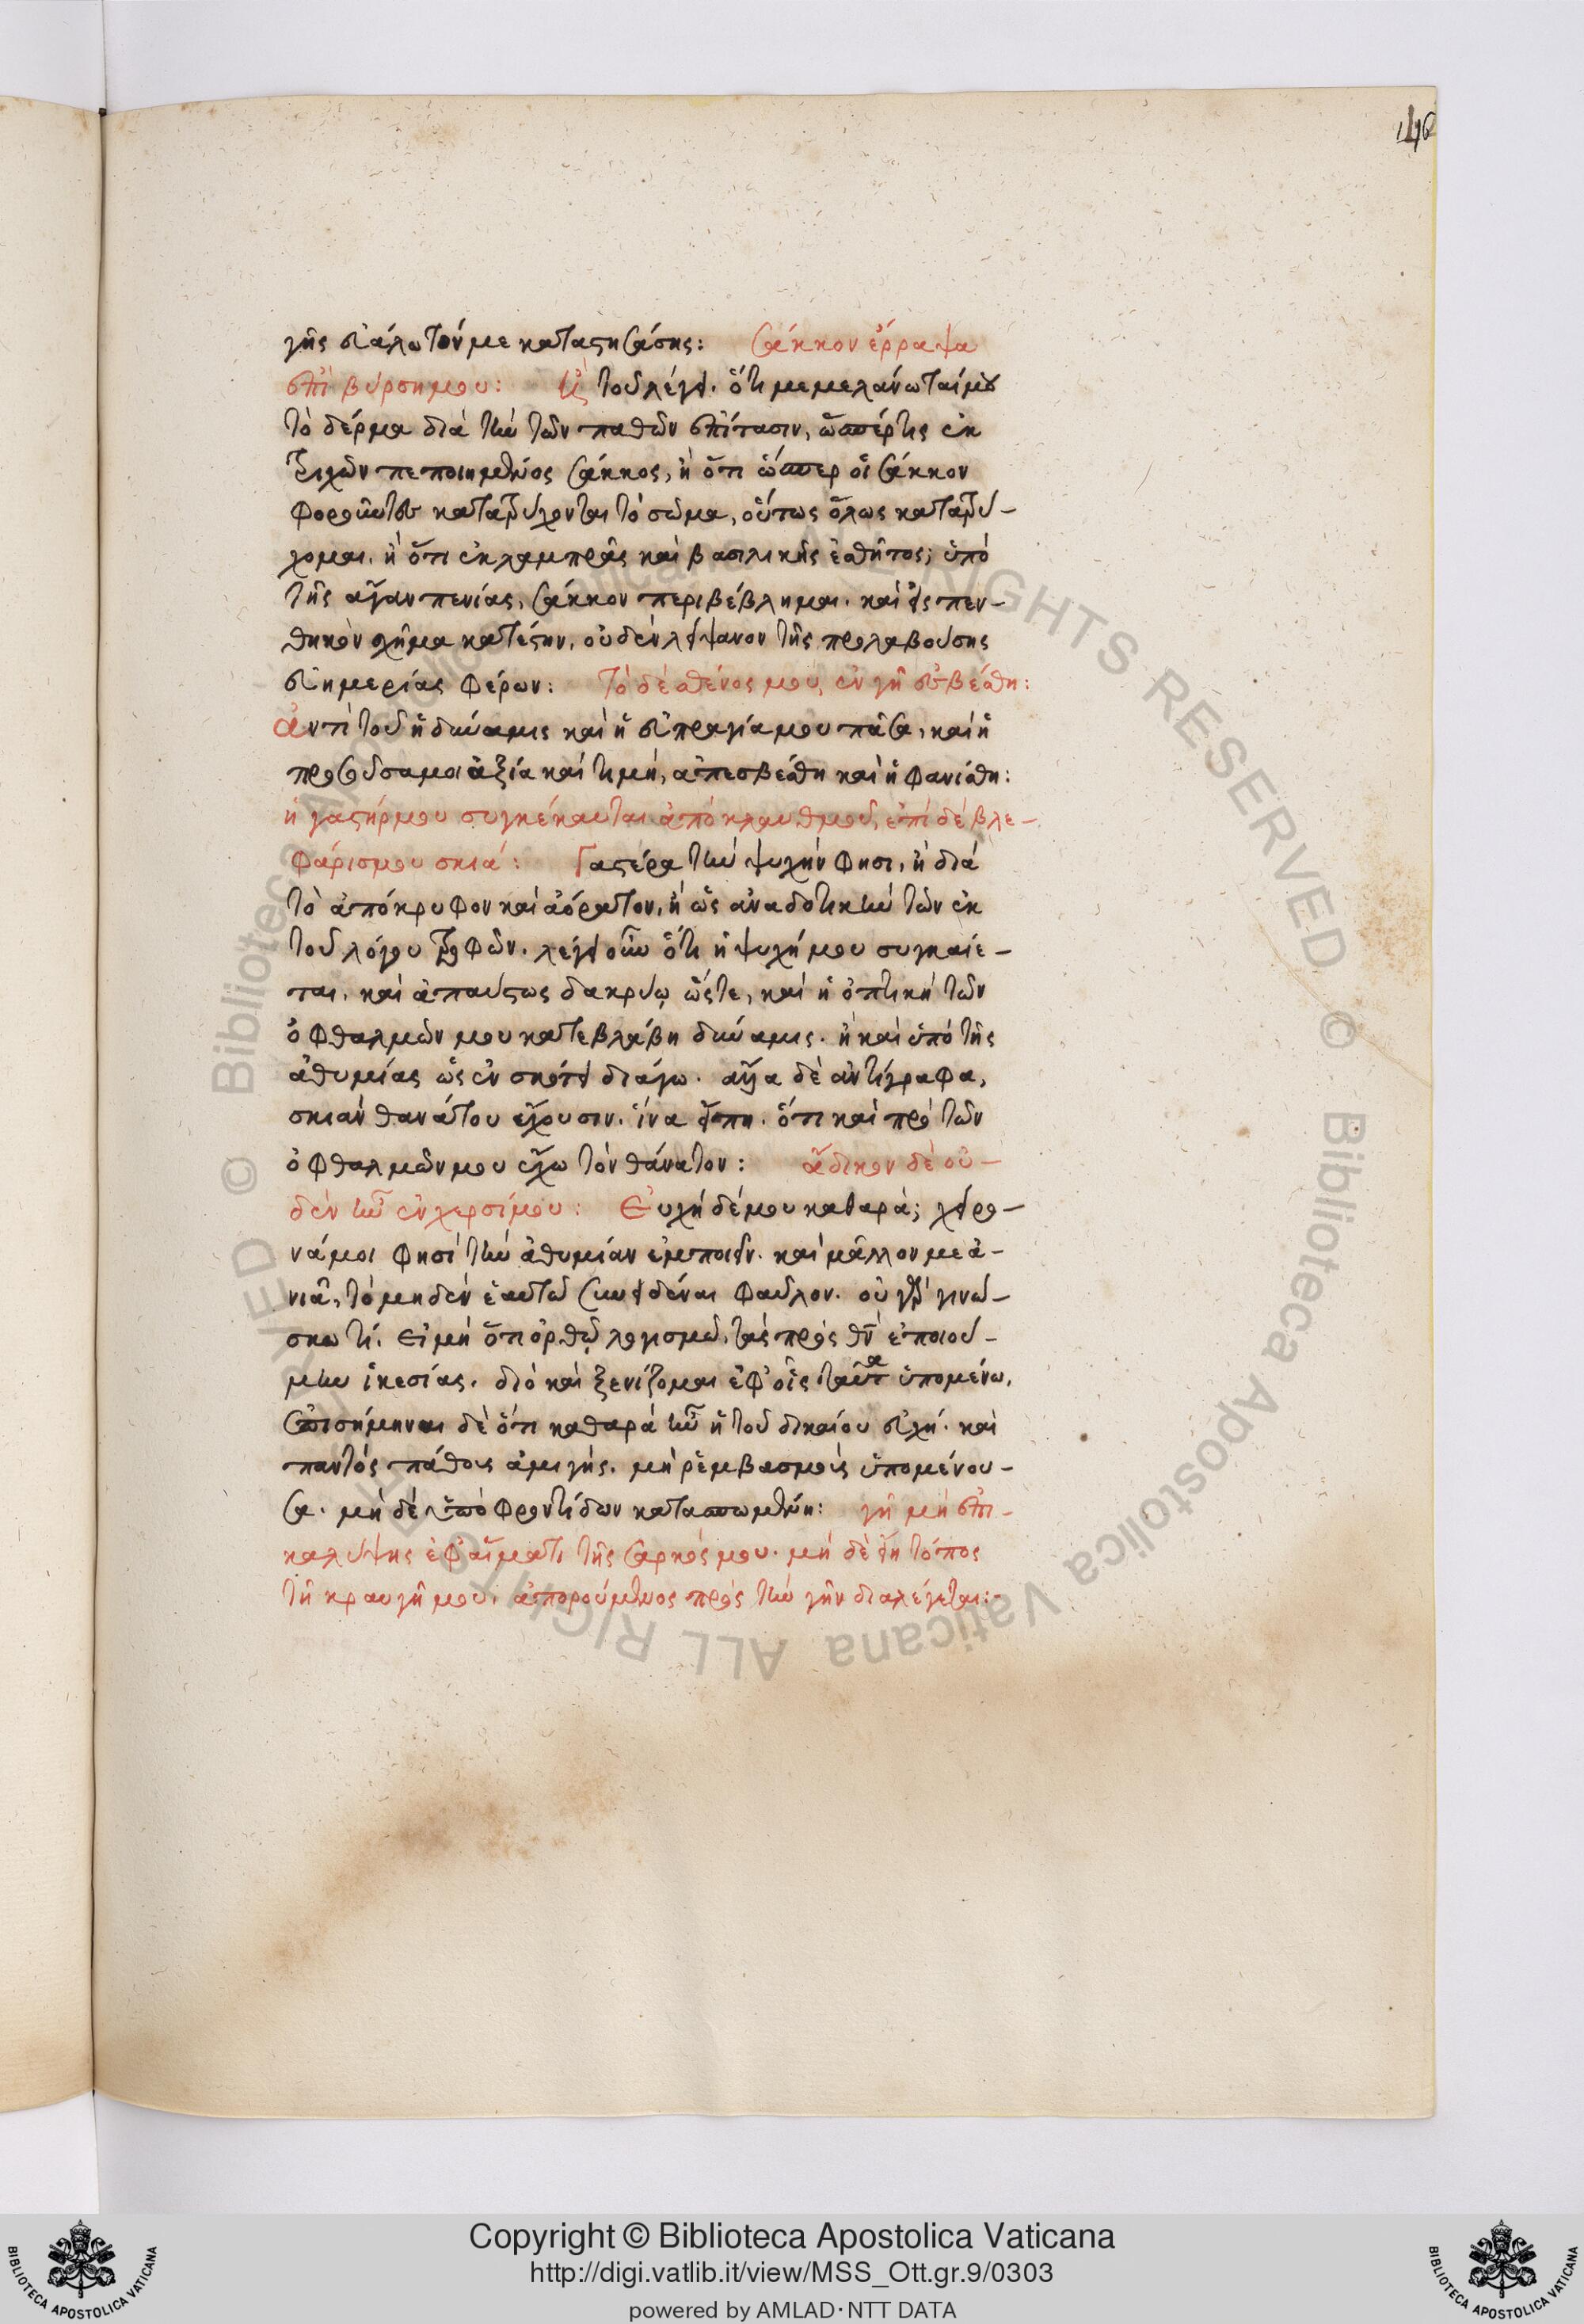 146
γῆς εὐάλωτόν με καταστησάσης: σάκκον ἔρραψα
ἐπὶ βύρσῃ μου: τουλέγει. ὅτι μεμελάνωταί μου
τὸ δέρμα διὰ τὴν τῶν παθῶν ἐπίτασιν, ὥσπέρ τις ἐκ
τριχῶν πεποιημένος σάκκος, ἢ ὅτι ὥσπερ οἱ σάκκον
φοροῦντες κατατρύχονται τὸ σῶμα, οὕτως ὅλως κατατρύ-
χομαι. ἢ ὅτι ἐκ λαμπρᾶς καὶ βασιλικῆς ἐσθῆτος, ὑπὸ
τῆς ἄγαν πενίας, σάκκον περιβέβλημαι. καὶ εἰς πεν-
θικὸν σχῆμα κατέστην, οὐδὲν λείψανον τῆς προλαβούσης
εὐημερίας φέρων: τὸ δὲ σθένος μου, ἐν γῇ ἐσβέσθη:
ἀντὶ τοῦ ἡ δύναμις καὶ ἡ εὐπραγία μου πᾶσα, καὶ ἡ
προσοῦσά μοι ἀξία καὶ τιμή, ἀπεσβέσθη καὶ ἠφανίσθη:
ἡ γαστήρ μου συγκέκαυται ἀπὸ κλαυθμοῦ, ἐπὶ δὲ βλε-
φάροις μου σκιά: Γαστέρα τὴν ψυχήν φησι, ἢ διὰ
τὸ ἀπόκρυφον καὶ ἀόρατον, ἢ ὡς ἀναδοτικὴν τῶν ἐκ
τοῦ λόγου τροφῶν. λέγει οὖν ὅτι ἡ ψυχή μου συγκαίε-
ται, καὶ ἀπαύστως δακρύω ὥστε, καὶ ἡ ὀπτικὴ τῶν
ὀφθαλμῶν μου κατεβλάβη δύναμις. ἢ καὶ ὑπὸ τῆς
ἀθυμίας ὡς ἐν σκότει διάγω. ἄλλα δὲ ἀντίγραφα,
σκιὰν θανάτου ἔχουσιν. ἵνα εἴπῃ. ὅτι καὶ πρὸ τῶν
ὀφθαλμῶν μου ἔχω τὸν θάνατον: ἄδικον δὲ οὐ-
δὲν ἦν ἐν χερσί μου: Εὐχὴ δέ μου καθαρά; χείρο-
νά μοι φησὶ τὴν ἀθυμίαν ἐμποιεῖν. καὶ μᾶλλον με ἀ-
νιᾷ, τὸ μηδὲν ἑαυτῷ συνειδέναι φαῦλον. οὐ γὰρ γινώ-
σκω τί. εἰ μὴ ὅτι ὀρθῷ λογισμῷ, τὰς πρὸς θν̄ ἐποιού-
μην ἱκεσίας. διὸ καὶ ξενίζομαι ἐφ' οἷς ταῦτα ὑπομένω.
ἐπισήμηναι δὲ ὅτι καθαρὰ ἦν ἡ τοῦ δικαίου εὐχή. καὶ
παντὸς πάθους ἀμιγής. μὴ ῥεμβασμοὺς ὑπομένου-
σα. μὴ δὲ ὑπὸ φροντίδων κατασπωμένη: γῆ μὴ ἐπι-
καλύψῃς ἐφ' αἵματι τῆς σαρκός μου. μὴ δὲ εἴη τόπος
τῇ κραυγῇ μου. ἀπορούμενος πρὸς τὴν γῆν διαλέγεται:-
© Biblioteca Apostolica Vaticana ALL RIGHTS RESERVED © Biblioteca Apostolica Vaticana ALL RIGHTS RESERVED
Copyright © Biblioteca Apostolica Vaticana
http://digi.vatlib.it/view/MSS_Ott.gr.9/0303
powered by AMLAD·NTT DATA
BIBLIOTECA APOSTOLICA VATICANA
BIBLIOTECA APOSTOLICA VATICANA